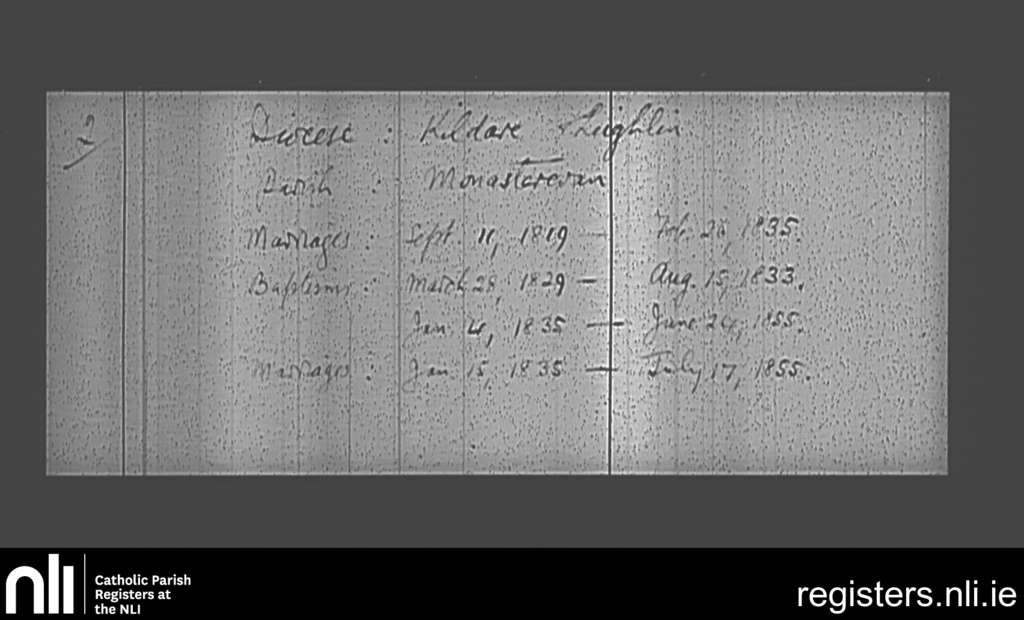 2/
Diocese : Kildare & Leighlin
Parish : Monasterevan
Marriages : Sept. 11, 1819 — Feb. 20, 1835.
Baptisms : March 28, 1829 — Aug. 15, 1833.
Jan. 4, 1835 — June 24, 1855.
Marriages : Jan. 15, 1835 — July 17, 1855.
nli
Catholic Parish
Registers at
the NLI
registers.nli.ie